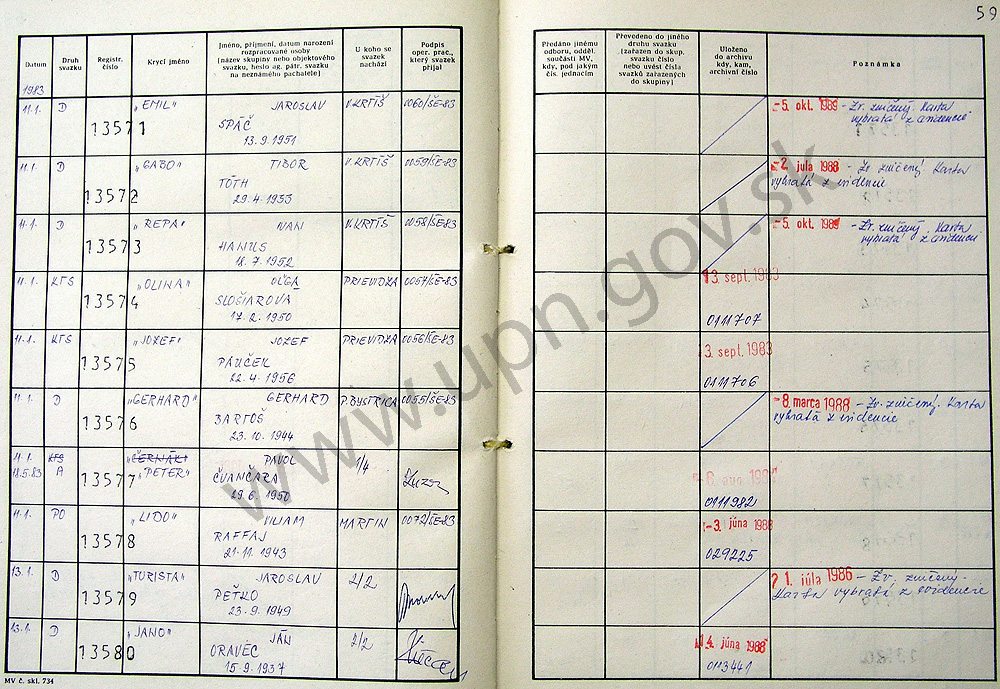 59
Datum
Druh svazku
Registr. číslo
Krycí jméno
Jméno, příjmení, datum narození
rozpracované osoby
[název skupiny nebo objektového
svazku, heslo ag. pátr. svazku
na neznámého pachatele]
U koho se
svazek
nachází
Podpis
oper. prac.,
který svazek
přijal
Předáno jinému
odboru, odděl.
součásti MV,
kdy, pod jakým
čís. jednacím
Převedeno do jiného
druhu svazku
[zařazen do skup.
svazku číslo
nebo uvést čísla
svazků zařazených
do skupiny]
Uloženo
do archivu
kdy, kam,
archivní číslo
Poznámka
1983
11.1. D 13571 „EMIL" JAROSLAV V.KRTÍŠ 0060/ŠE-83
SPÁČ
13.9.1951
-5. okt. 1989 - Zv. zničený. Karta
vybratá z evidencie
11.1. D 13572 „GABO" TIBOR V.KRTÍŠ 0059/ŠE-83
TÓTH
29.4.1953
-2. júla 1988 - Zv. zničený. Karta
vybratá z evidencie
11.1. D 13573 „REPA" IVAN V.KRTÍŠ 0058/ŠE-83
HANUS
18.7.1952
-5. okt. 1989 - Zv. zničený. Karta
vybratá z evidencie
11.1. KTS 13574 „OLINA" OĽGA PRIEVIDZA 0057/ŠE-83
SLOŠIAROVÁ
17.2.1950
13. sept. 1983
0111707
11.1. KTS 13575 „JOZEF" JOZEF PRIEVIDZA 0056/ŠE-83
PAUČEK
22.4.1956
13. sept. 1983
0111706
11.1. D 13576 „GERHARD" GERHARD P.BYSTRICA 0055/ŠE-83
BARTOŠ
23.10.1944
-8. marca 1988 - Zv. zničený. Karta
vybratá z evidencie
11.1. KTS 13577 „ČERNÁK" PAVOL 1/4
18.5.83 A „PETER" ČVANČARA
29.6.1950
-6. aug.
0111982
11.1. PO 13578 „LIDO" VILIAM MARTIN 0072/ŠE-83
RAFFAJ
21.11.1943
-3. júna 1988
029225
13.1. D 13579 „TURISTA" JAROSLAV 2/2
PEŤKO
23.9.1949
21. júla 1986 - Zv. zničený.
Karta vybratá z evidencie
13.1. D 13580 „JANO" JÁN 2/2
ORAVEC
15.9.1937
14. júna 1988
0113441
MV č. skl. 734
www.upn.gov.sk